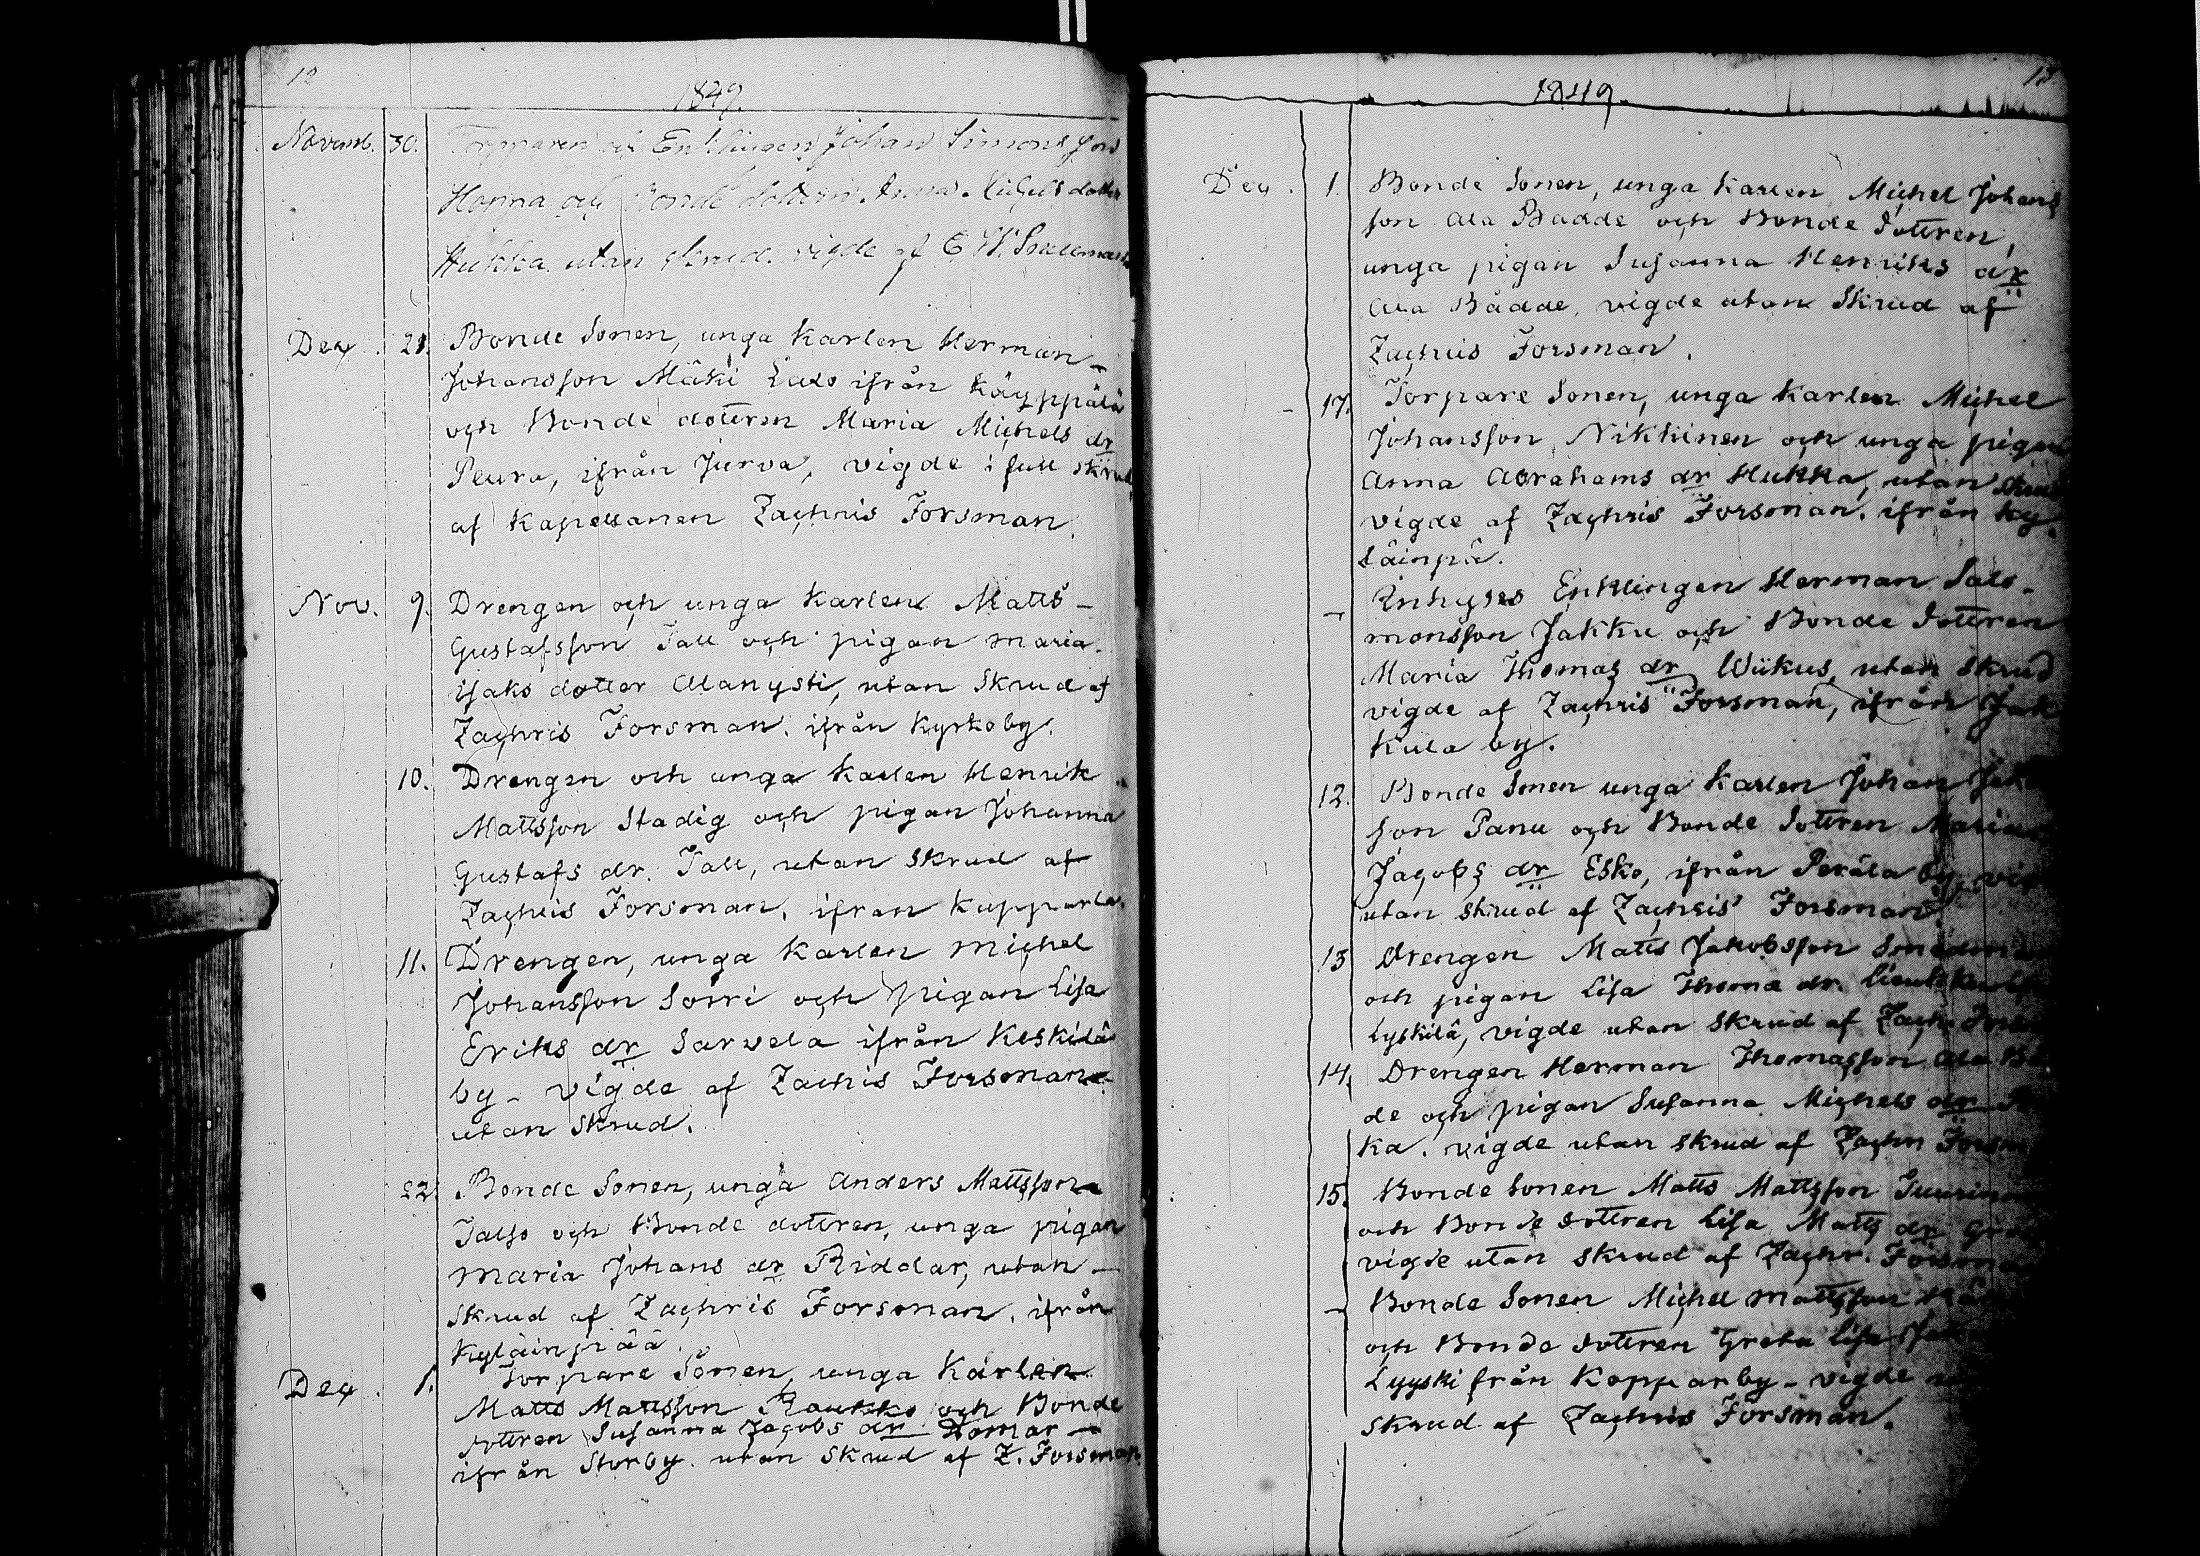 12
1849.
Novemb. 30. Torparen och Enklingen Johan Simonsson
Hanna och Bonde dottren Anna Michels dotter
Hukka utan skrud. vigde af E W. Snellman
Dec. 28. Bonde Sonen, unga Karlen Herman
Johansson Mäki Lalo ifrån Käyppälä
och Bonde dottren Maria Michels dr
Peura, ifrån Jurva, vigde i full skrud
af Kapellanen Zachris Forsman.
Nov. 9. Drengen och unga Karlen Matts
Gustafsson Tall och pigan Maria
isaks dotter Alanysti, utan Skrud af
Zachris Forsman. ifrån Kyrkoby.
10. Drengen och unga Karlen Henrik
Mattsson Stadig och pigan Johanna
Gustafs dr. Tall, utan Skrud af
Zachris Forsman, ifrån Kopparla.
11. Drengen, unga Karlen Michel
Johansson Sorri och pigan Lisa
Eriks dr Sarvela ifrån Keskilä
by - vigde af Zachis Forsman
utan Skrud.
22. Bonde Sonen, unga Anders Mattsson
Talso och Bonde dottren, unga pigan
Maria Johans dr Riddar, utan
Skrud af Zachris Forsman. ifrån
Kyläinpää.
Dec. 1. Torpare Sonen, unga Karlen
Matts Mattsson Raukko och Bonde
dottren Susanna Jacobs dr Domar
ifrån Storby. utan Skrud af Z. Forsman.
13
1849.
Dec. 1. Bonde Sonen, unga Karlen Michel Johans
son Ala Bådde och Bonde dottren,
unga pigan Susanna Henriks dr
Ala Bådde, vigde utan Skrud af
Zachris Forsman.
- 17. Torpare Sonen, unga Karlen Michel
Johansson Nikkinen och unga pigan
Anna Abrahams dr Hukka, utan skrud
vigde af Zachris Forsman. ifrån Ky
läinpä.
- Inhyses Enklingen Herman Salo
monsson Jakku och Bonde dottren
Maria Thomas dr Wiikus, utan Skrud
vigde af Zachris Forsman, ifrån Jak
kula by.
12. Bonde Sonen unga Karlen Johan
son Panu och Bonde dottren Maria
Jacobs dr Esko, ifrån Peräla by,
utan skrud af Zachris Forsman
13 Drengen Matts Jakobsson
och pigan Lisa Thoma dr.
Lyskilä, vigde utan skrud af Zach.
14. Drengen Herman Thomasson Ala
de och pigan Susanna Michels dr
ka. vigde utan skrud af Zachr
15. Bonde Sonen Matts Mattsson
och Bonde dottren Lisa Matts dr
vigde utan skrud af Zachr.
- Bonde Sonen Michel Mattsson
och Bonde dottren Greta Lisa
Lyyski från Kopparby - vigde
skrud af Zachris Forsman.